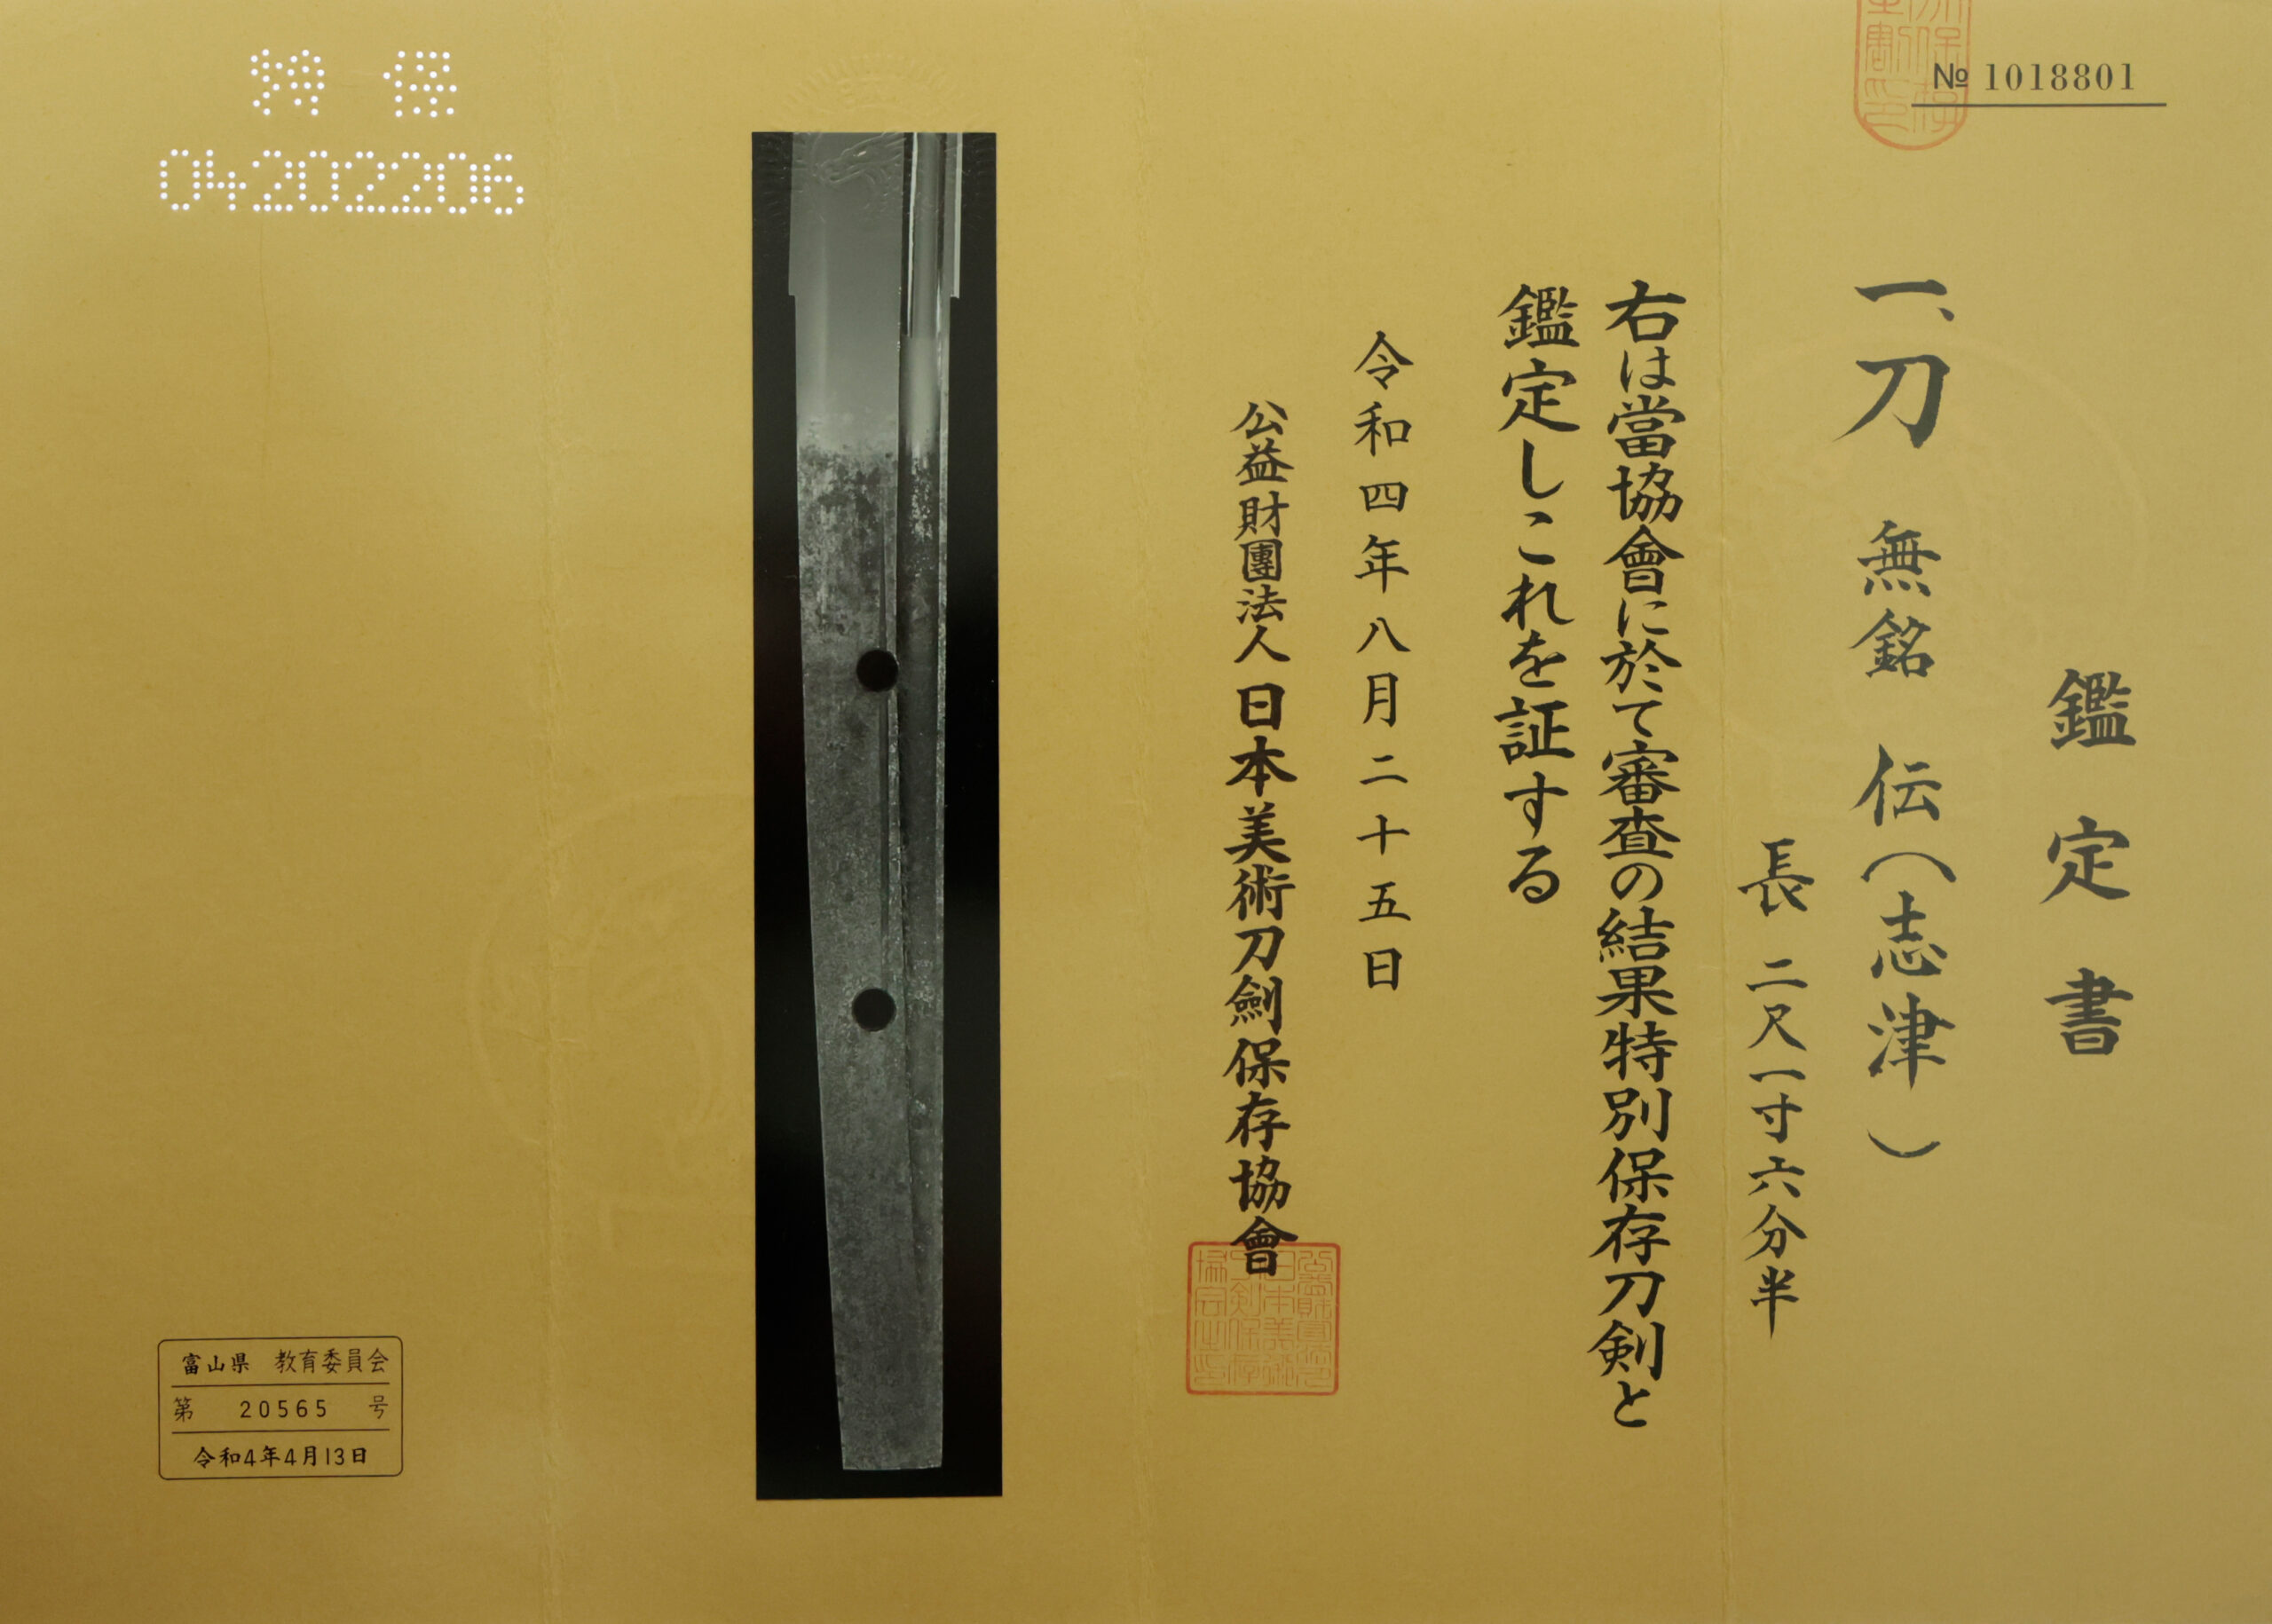 № 1018801
鑑定書
一、刀 無銘 伝(志津)
長 二尺一寸六分半
右は當協會に於て審査の結果特別保存刀剣と
鑑定しこれを証する
令和四年八月二十五日
公益財團法人 日本美術刀劍保存協會
特保
04202206
富山県 教育委員会
第 20565 号
令和4年4月13日